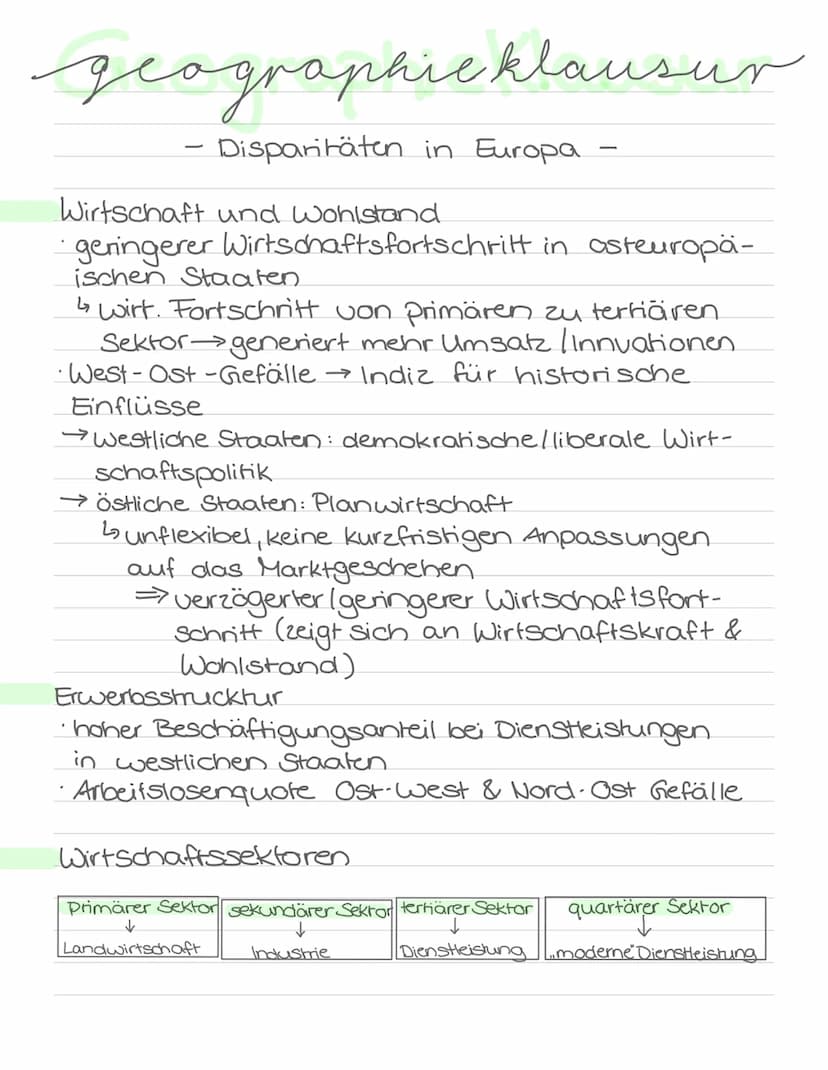 Geographieklausur
- Disparitäten in Europa -
Wirtschaft und Wohlstand
· geringerer Wirtschaftsfortschritt in osteuropä-
ischen Staaten
↳ wirt. Fortschritt von primären zu tertiären
Sektor → generiert mehr Umsatz / Innvationen
· West-Ost-Gefälle → Indiz für historische
Einflüsse
→ westliche Staaten: demokratische/liberale Wirt-
schaftspolitik
→ östliche Staaten: Planwirtschaft
↳ unflexibel, keine kurzfristigen Anpassungen
auf das Marktgeschehen
⇒ verzögerter/geringerer Wirtschaftsfort-
schritt (zeigt sich an Wirtschaftskraft &
Wohlstand)
Erwerbsstrucktur
· hoher Beschäftigungsanteil bei Dienstleistungen
in westlichen Staaten
· Arbeitslosenquote Ost-West & Nord-Ost Gefälle
Wirtschaftssektoren
Primärer Sektor sekundärer Sektor tertiärer Sektor quartärer Sektor
↓ ↓ ↓ ↓
Landwirtschaft Industrie Dienstleistung „moderne" Dienstleistung